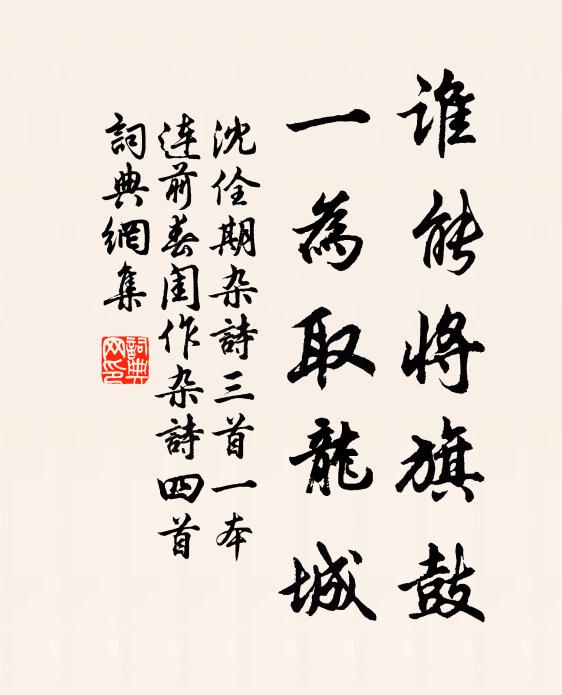 谁能将旗鼓
一為取龍城
沈佺期杂詩三首一本
连前春闺作杂詩四首
詞典網集
詞典网印